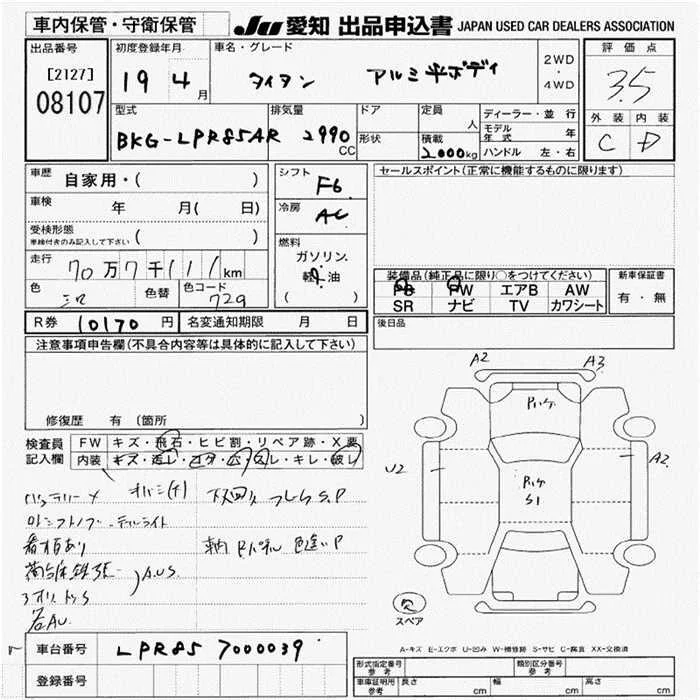 車内保管・守衛保管
JU 愛知 出品申込書 JAPAN USED CAR DEALERS ASSOCIATION
出品番号
[2127]
08107
初度登録年月
19 4 月
車名・グレード
タイタン アルミ平ボディ
2WD
・
4WD
評価点
3.5
外装 内装
C D
型式
BKG-LPR85AR
排気量
2990
CC
ドア
形状
定員
人
積載
2000kg
ディーラー・並行
モデル年式 年
ハンドル 左・右
車歴 自家用・( )
車検 年 月( 日)
受検形態
車検付きのみ記入して下さい ( )
走行 70万7千111km
色 色替 色コード
729
シフト
F6
冷房
AC
燃料
ガソリン
軽油
( )
セールスポイント(正常に機能するものに限ります)
装備品(純正品に限り○をつけてください)
PS PW エアB AW
SR ナビ TV カワシート
新車保証書
有・無
R券 10170 円 名変通知期限 月 日
後日品
注意事項申告欄(不具合内容等は具体的に記入して下さい)
修復歴 有 (箇所 )
検査員
記入欄
FW キズ・飛石・ヒビ割・リペア跡・X要
内装 キズ・汚レ・コゲ・穴・スレ・キレ・破レ
A2 A3
U2 A2
S1
スペア
A-キズ E-エクボ U-凹み W-補修跡 S-サビ C-腐食 XX-交換済
車台番号 LPR85 7000039
登録番号
型式指定番号
参考
類別区分番号
参考
車庫証明用
参考
長さ cm 幅 cm 高さ cm